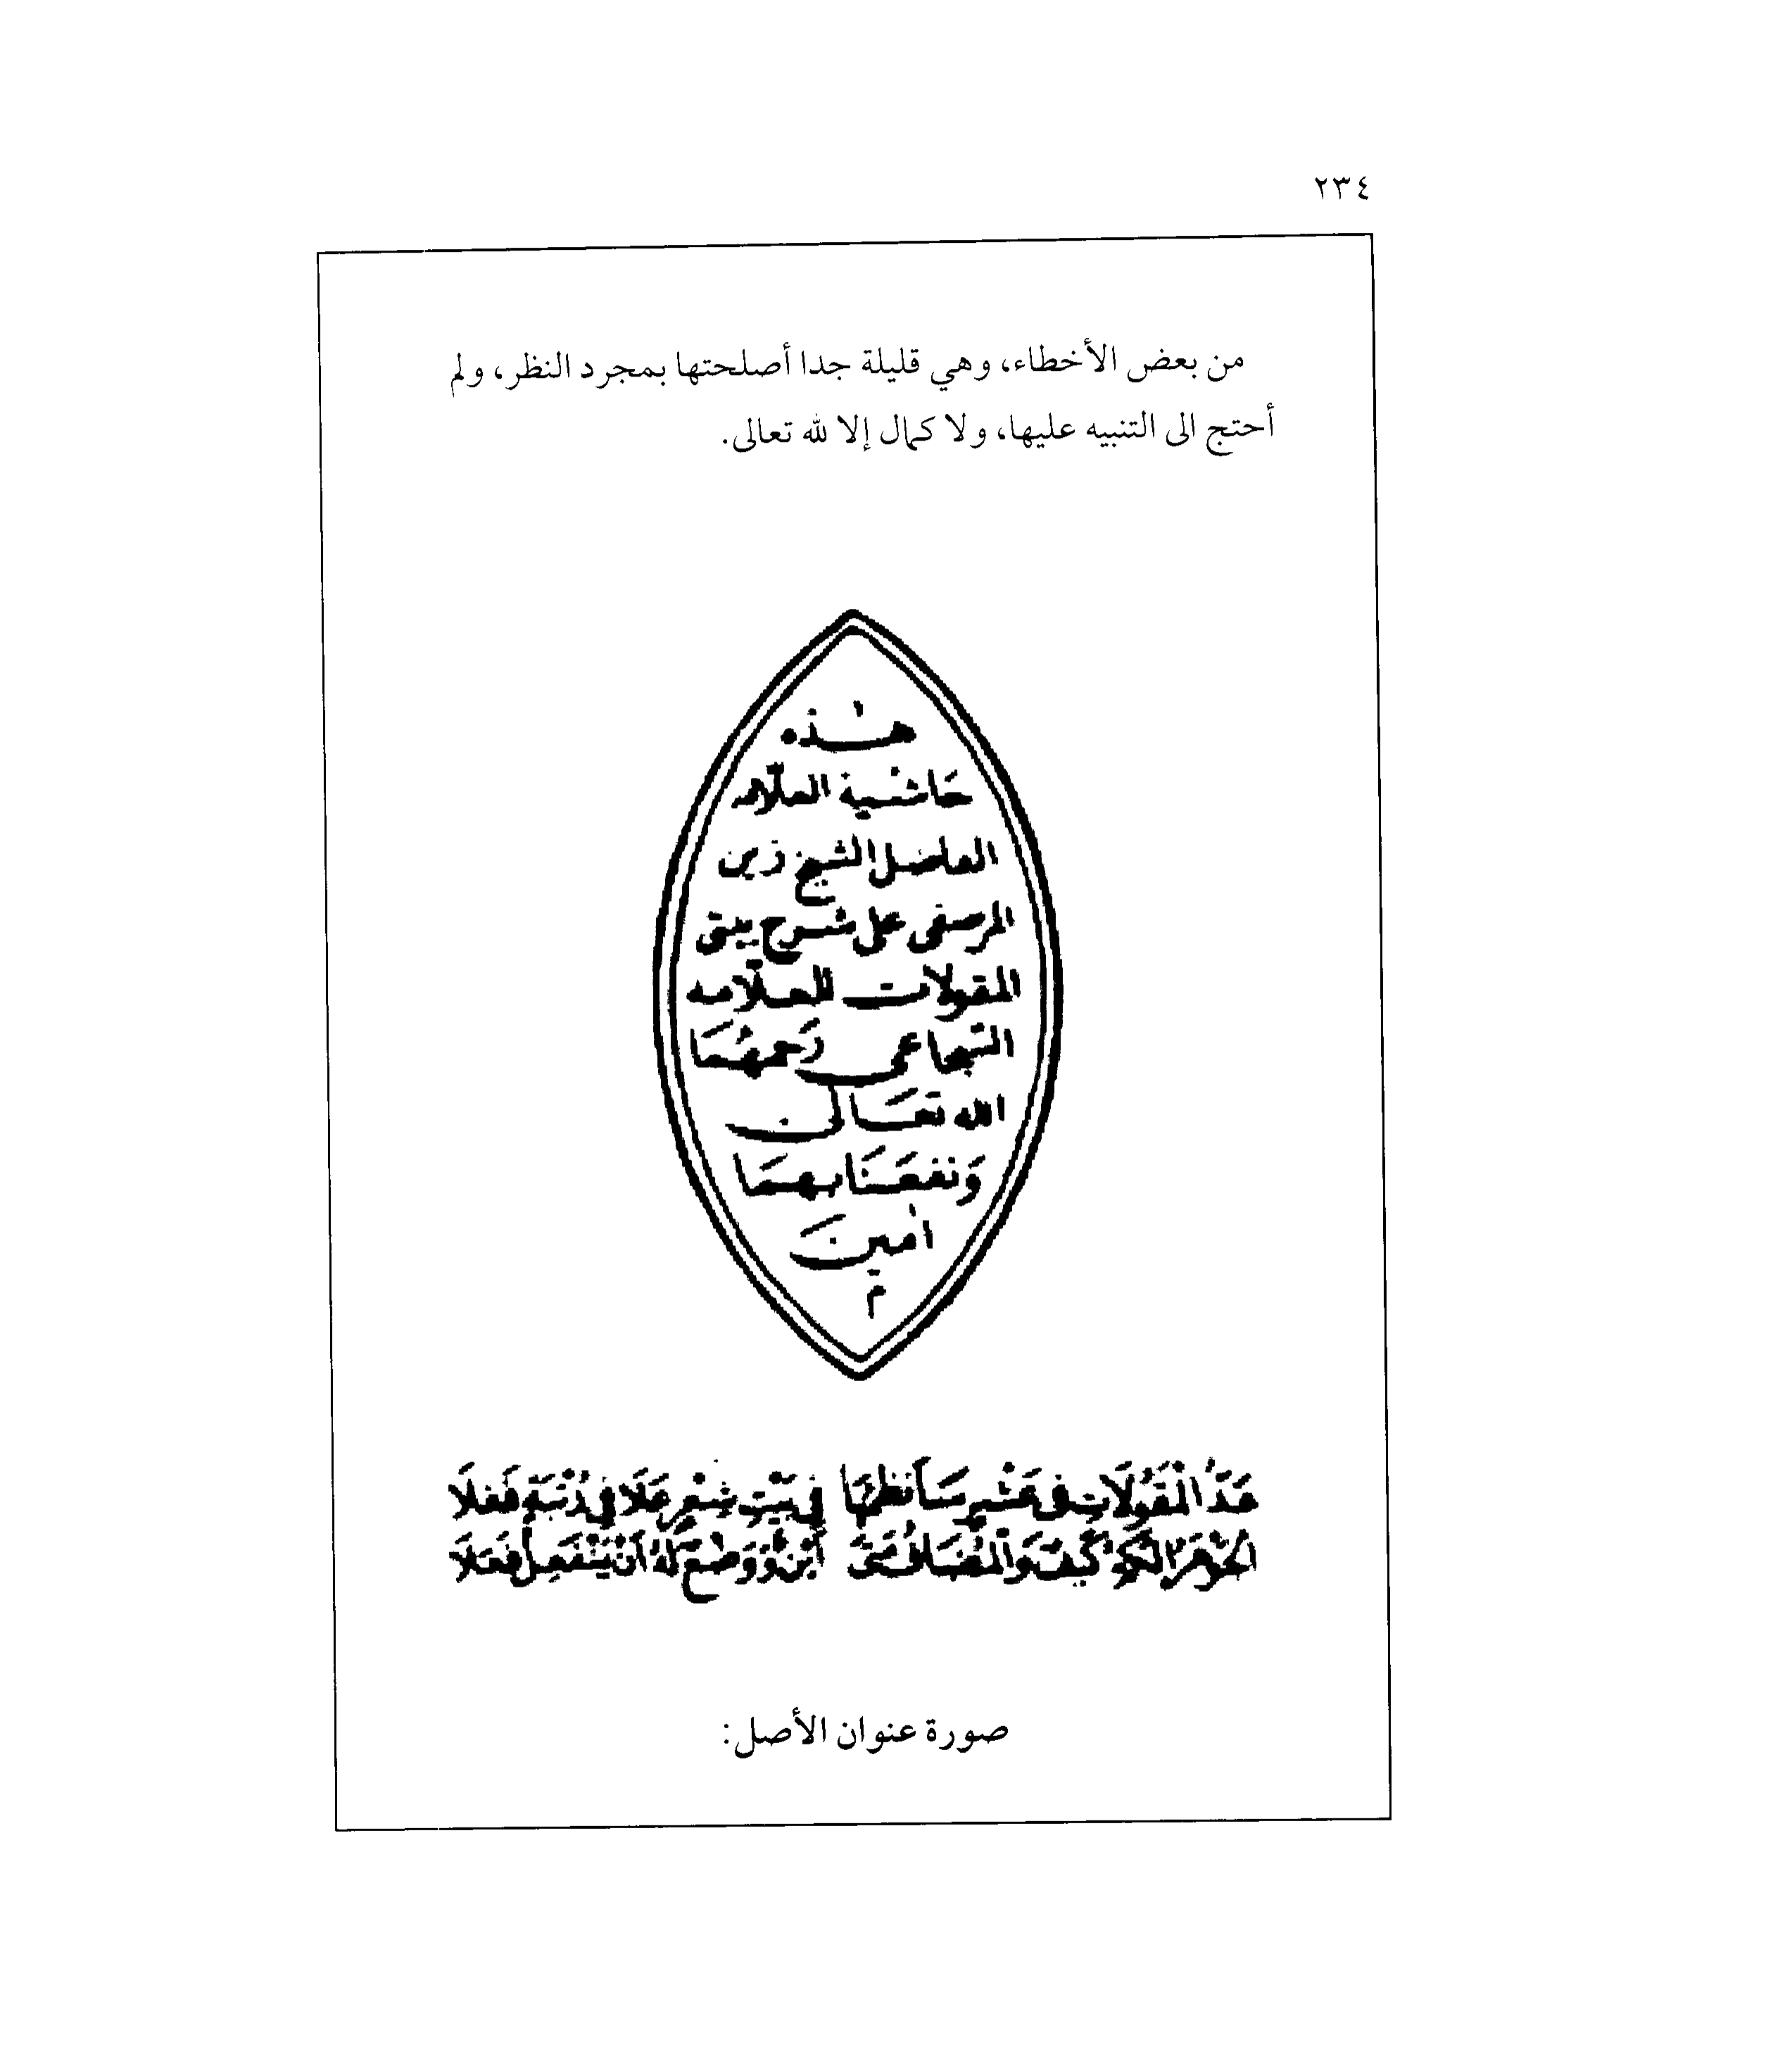 ٢٣٤
من بعض الأخطاء، وهي قليلة جدا أصلحتها بمجرد النظر، ولم
أحتج الى التنبيه عليها، ولا كمال إلا لله تعالى.
هٰذه
حَاشية العلّامه
الفاضل الشيخ زين
المرصفى على شرح بيتى
المقولات للعلّامه
السّجاعى رَحمهُمَا
الله تعَالى
وَنفعَنَا بهمَا
اٰمينَ
م
عَدُّ الْمَقُولَاتِ فى عَشْرٍ سَأنظمُهَا فِي بَيْتِ شِعْرٍ عَلَا فِي رُتْبَةٍ فَعَلَا
الجَوْهَرُ الْكَمُّ كَيْفٌ وَالْمُضَافُ مَتَى أَيْنٌ وَوَضْعٌ لَهُ أَنْ يَنْفَعِلْ فَعَلَا
صورة عنوان الأصل: